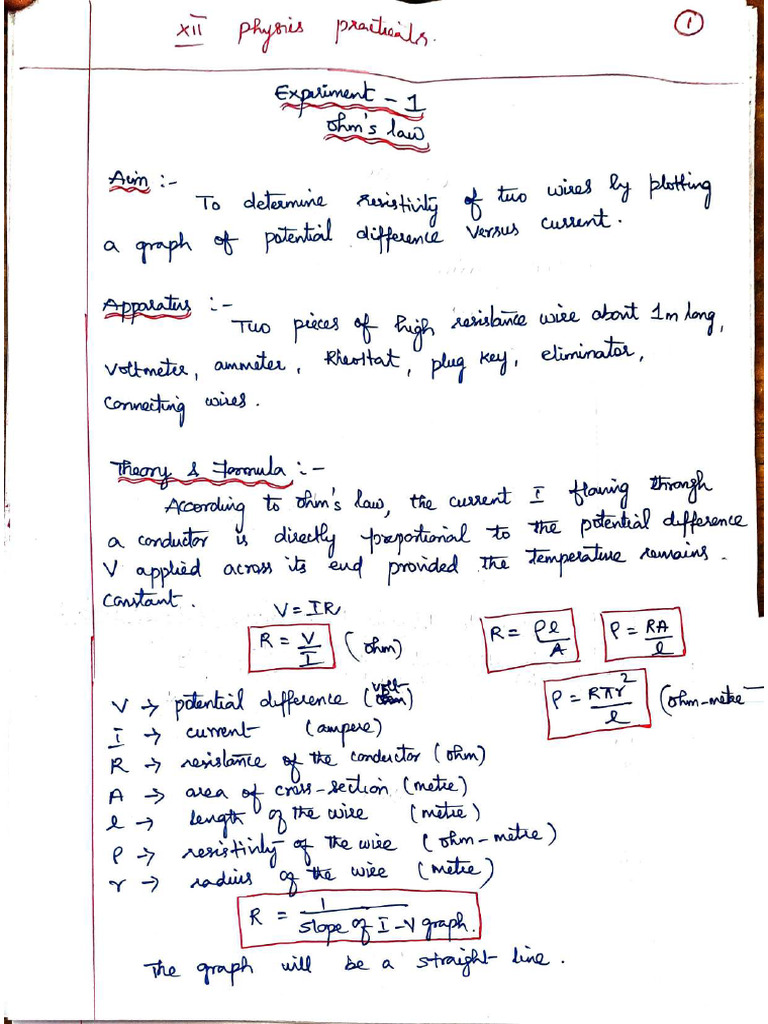 XII physics practicals.
1
Experiment - 1
ohm's law
Aim :-
To determine resistivity of two wires by plotting
a graph of potential difference versus current.
Apparatus :-
Two pieces of high resistance wire about 1m long,
voltmeter, ammeter, Rheostat, plug key, eliminator,
connecting wires.
Theory & Formula :-
According to ohm's law, the current I flowing through
a conductor is directly proportional to the potential difference
V applied across its end provided the temperature remains.
constant.
V = IR
R = V/I (ohm)
R = ρl/A
ρ = RA/l
ρ = Rπr²/l (ohm-metre
V → potential difference (volt)
I → current (ampere)
R → resistance of the conductor (ohm)
A → area of cross-section (metre)
l → length of the wire (metre)
ρ → resistivity of the wire (ohm-metre)
r → radius of the wire (metre)
R = 1/slope of I-V graph.
The graph will be a straight line.